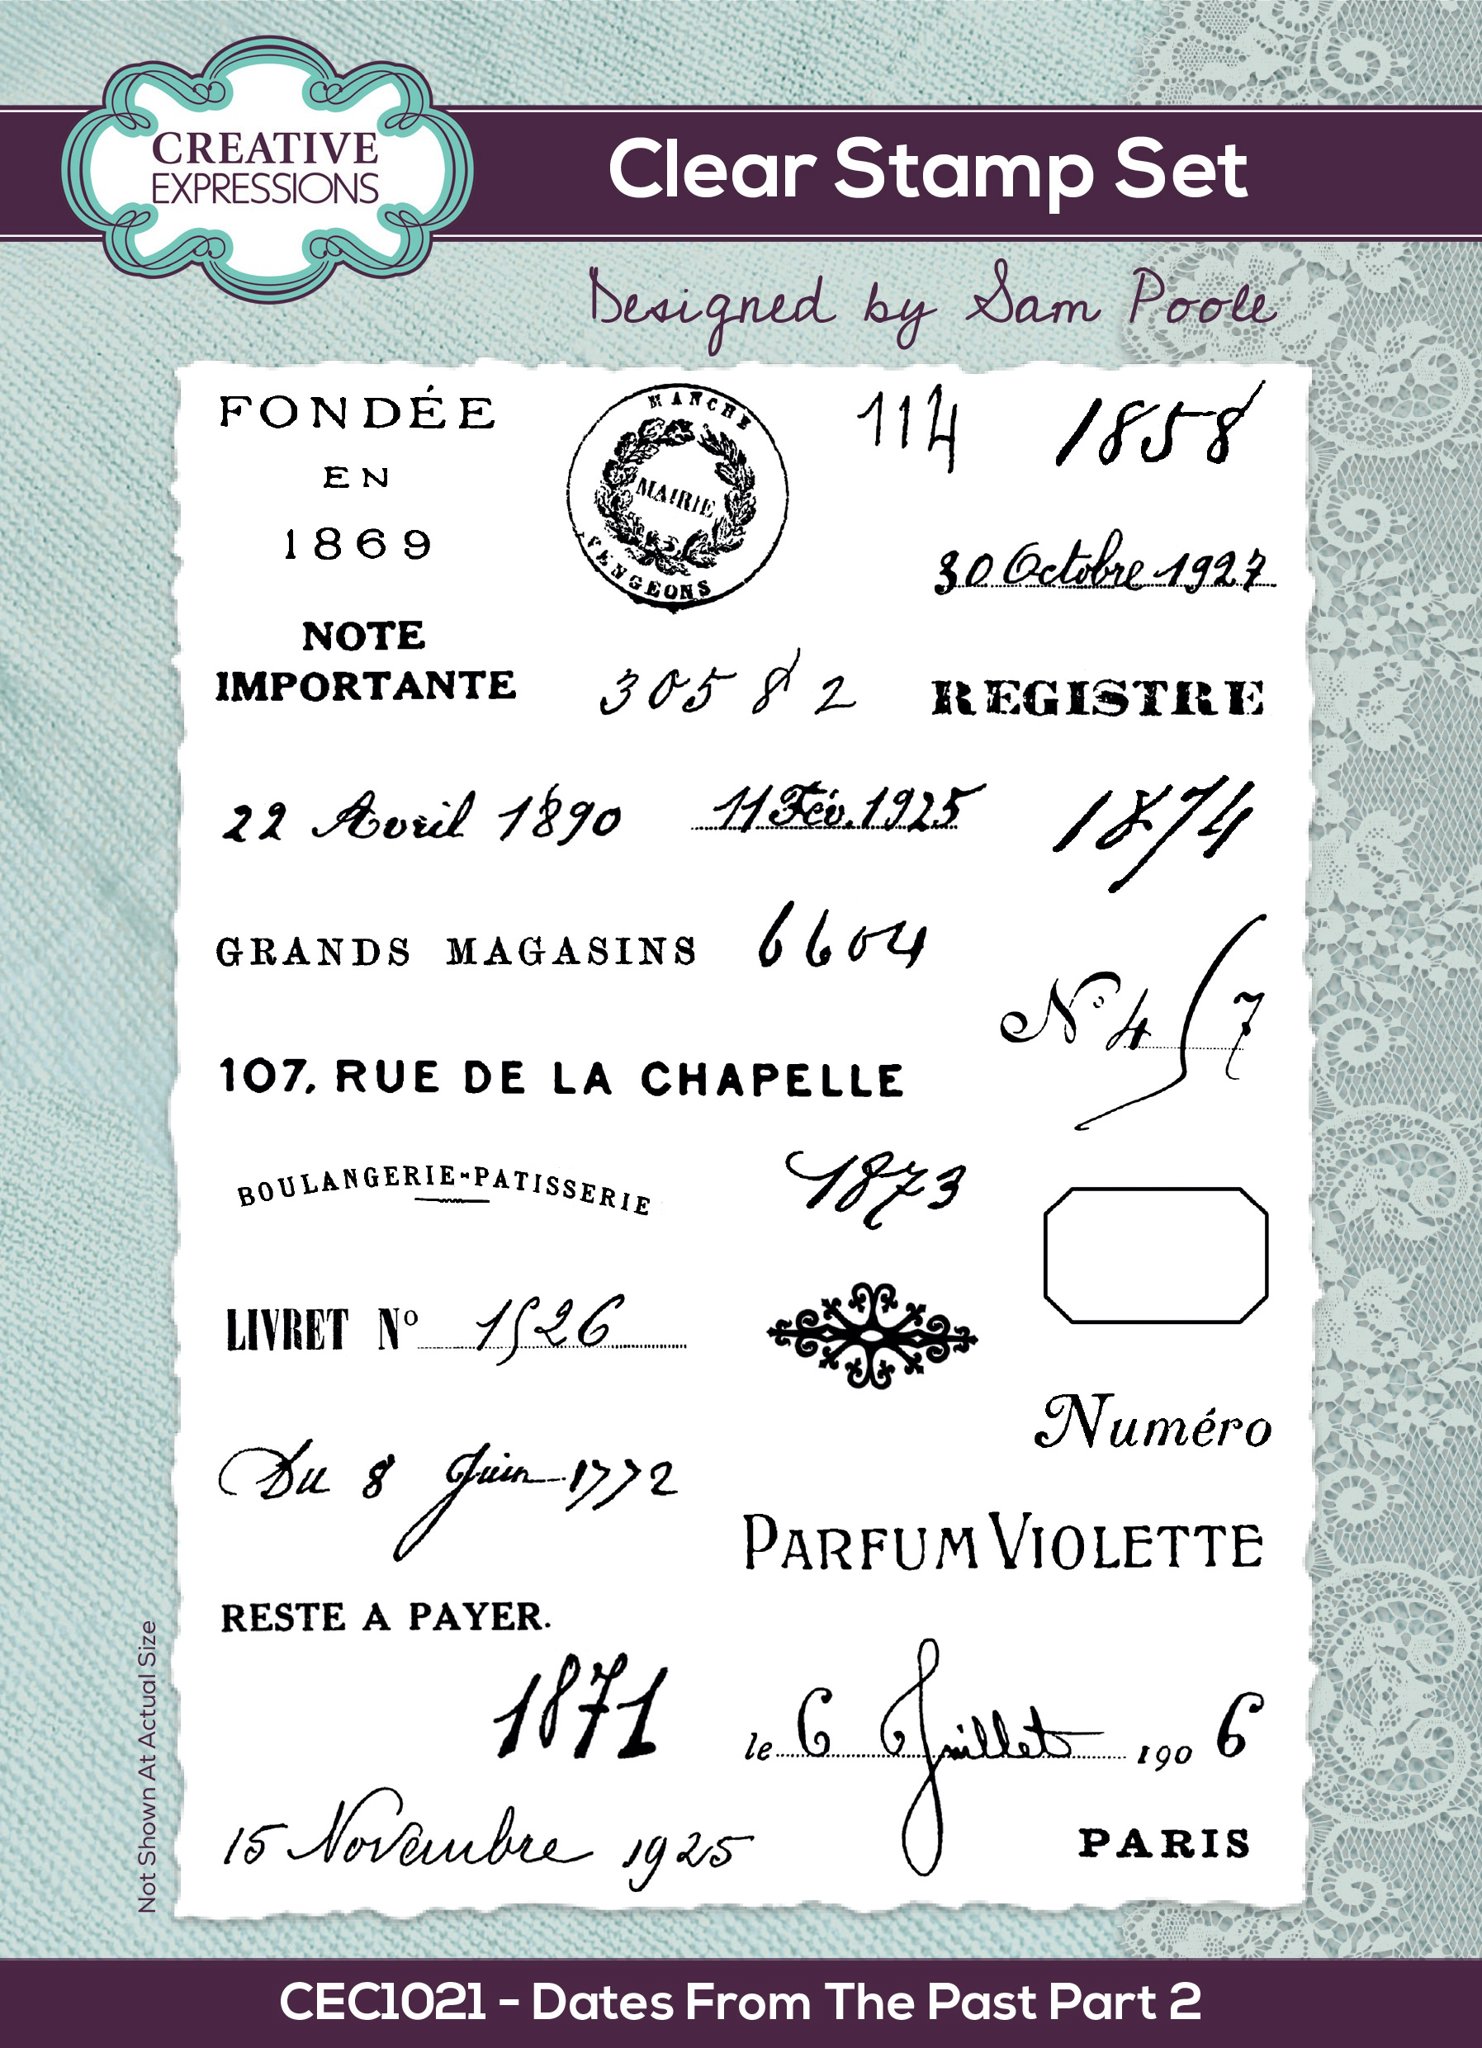 CREATIVE
EXPRESSIONS
Clear Stamp Set
Designed by Sam Poole
FONDÉE
EN
1869
MANCHE
MAIRIE
VENGEONS
114
1858
30 Octobre 1927
NOTE
IMPORTANTE
30582
REGISTRE
22 Avril 1890
11 Fév. 1925
1874
GRANDS MAGASINS
6604
N° 4 7
107, RUE DE LA CHAPELLE
BOULANGERIE-PATISSERIE
1873
LIVRET Nº 1526
Numéro
Du 8 Juin 1772
PARFUM VIOLETTE
RESTE A PAYER.
1871
le 6 Juillet 1906
15 Novembre 1925
PARIS
Not Shown At Actual Size
CEC1021 - Dates From The Past Part 2